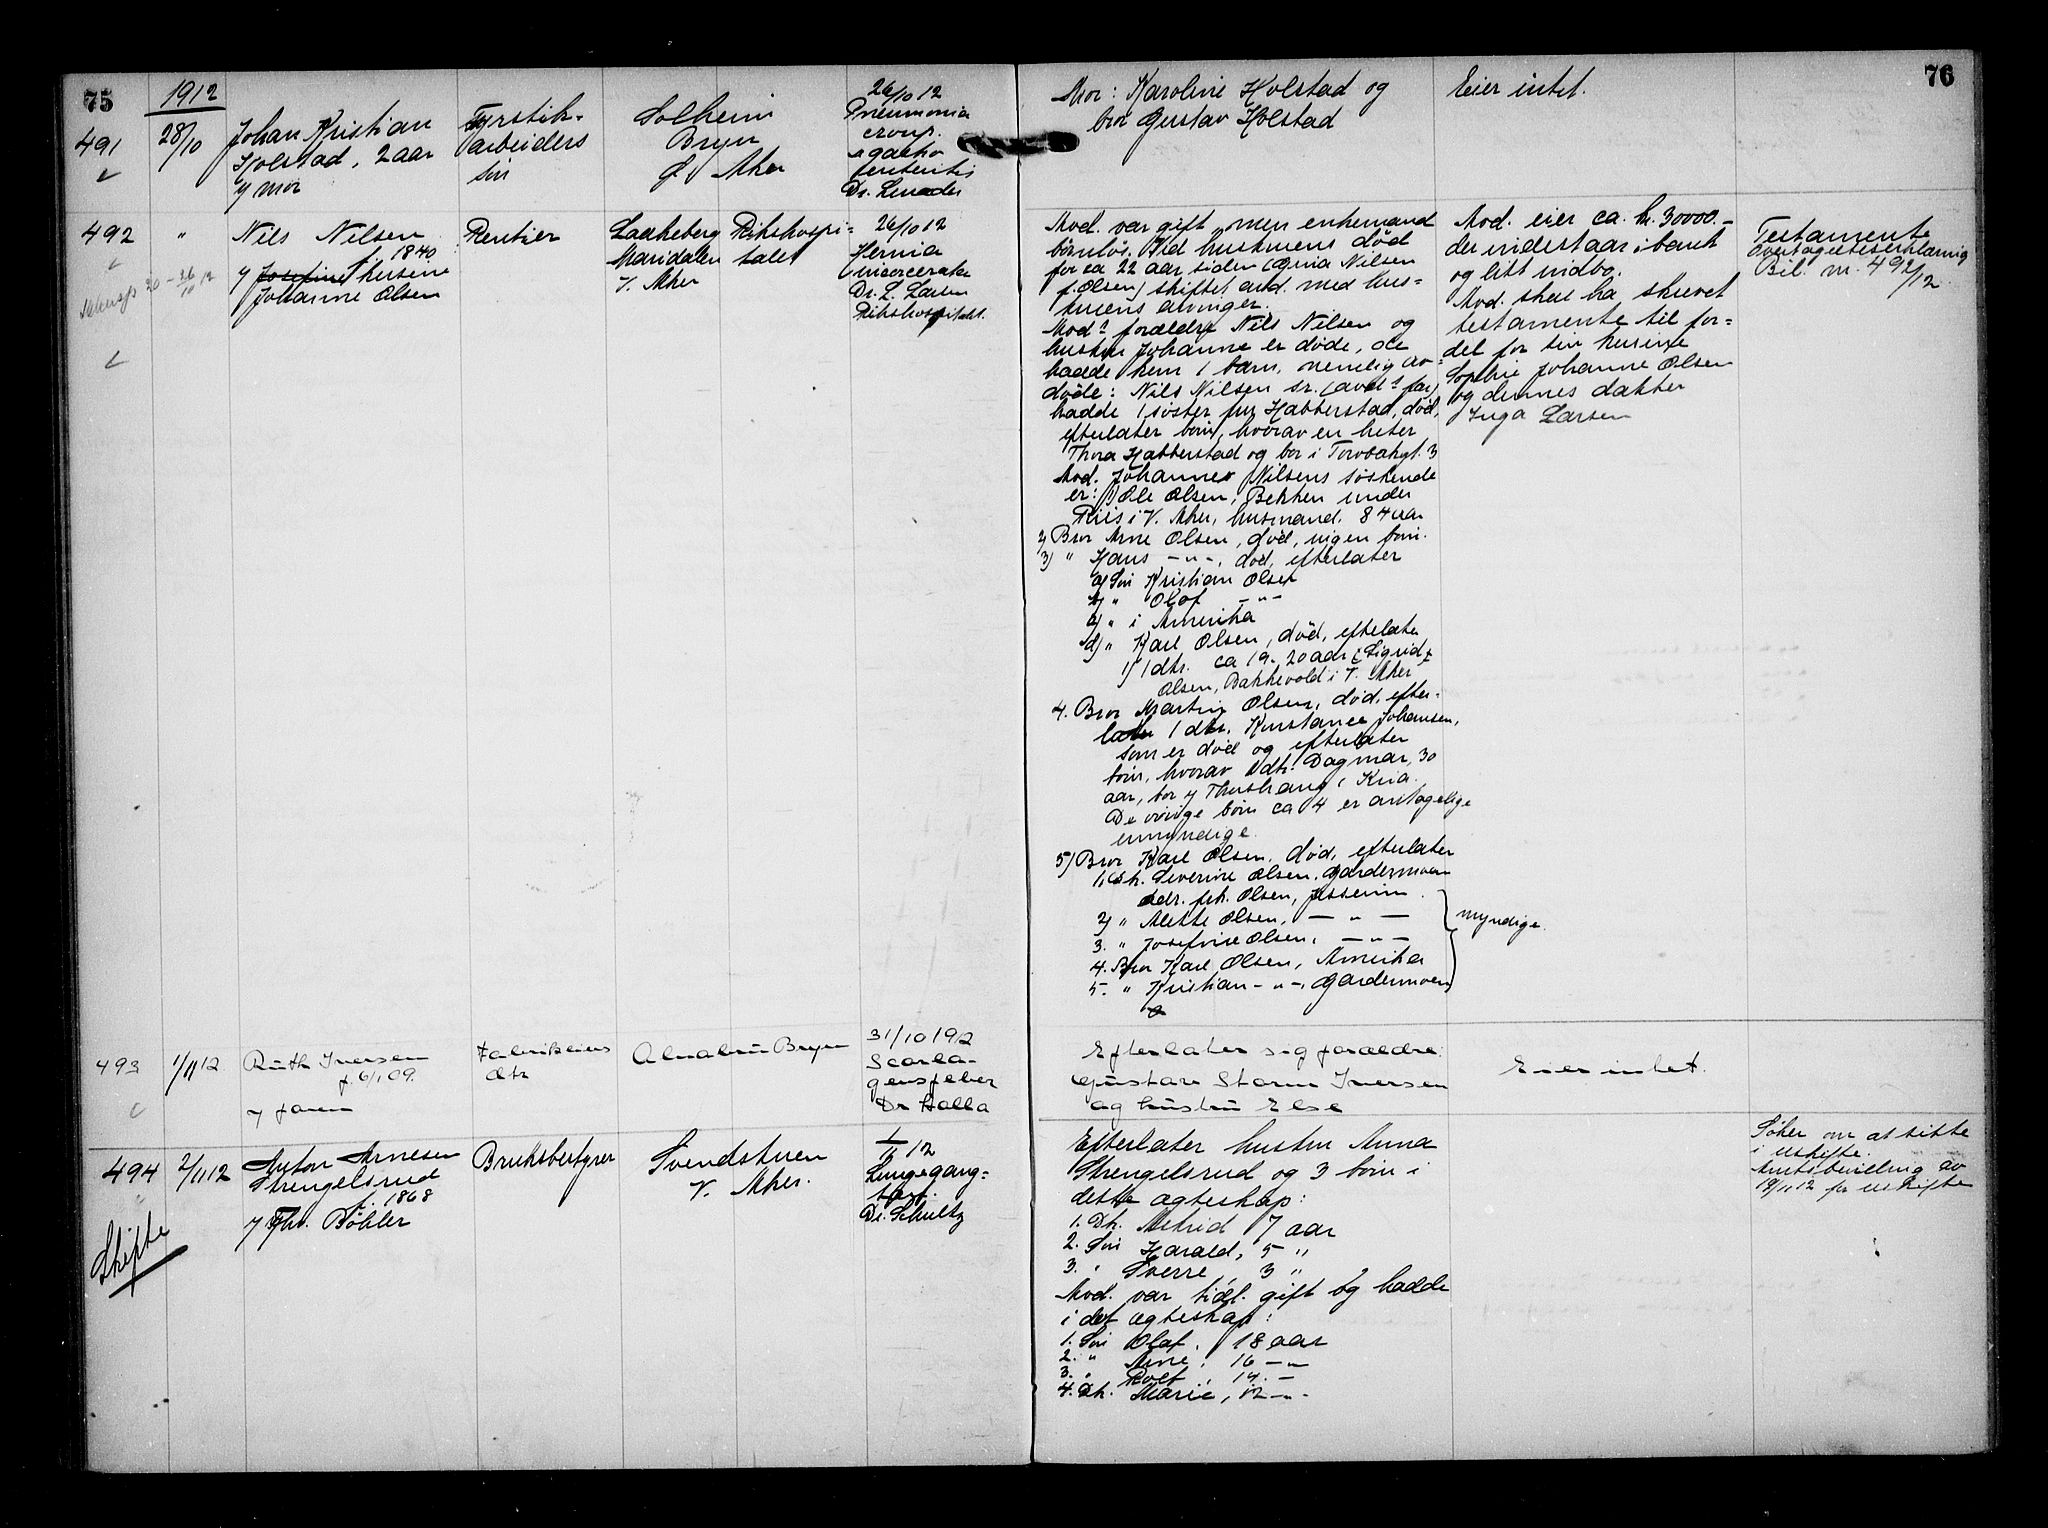 75
1912
491
28/10
Johan Kristian
Holstad, 2 aar
v/ mor
Fyrstik-
arbeiders
søn
Solheim
Bryn
Ø. Aker
26/10 12
Pneumonia
croup.
enteritis
Mor: Karoline Holstad og
bror Gustav Holstad
Eier intet.
76
492
"
Nils Nilsen
f. 1840
v/ Josefine kusine
Johanne Olsen
Rentier
Laakeberg
Maridalen
V. Aker
Rikshospi-
talet
26/10 12
Hernia
incarcerata
Dr. L. Larsen
Rikshospitalet.
Avd. var gift, men enkemand
barnløs. Ved hustruens død
for ca 22 aar siden (Gina Nilsen
f. Olsen) skiftet avd. med hus-
truens arvinger.
Avd.s forældre Nils Nilsen og
hustru Johanne er døde, de
hadde kun 1 barn, nemlig av-
døde: Nils Nilsen sr. (avd.s far)
hadde 1 søster fru Habberstad, død,
efterlater børn, hvorav en heter
Thora Habberstad og bor i Torvbakgt. 3
Avd. Johanne Nilsens søskende
er: 1) Ole Olsen, Bekken under
Riis i V. Aker, husmand. 84 aar
2) Bror Arne Olsen, død, ingen børn.
3) " Hans — " —, død, efterlater
a) Søn Kristian Olsen
b) " Olof — " —
c) " i Amerika
d) " Karl Olsen, død, efterlater
1) 1 dtr. ca 19-20 aar (Sigrid
Olsen, Bakkevold i V. Aker
4. Bror Martin Olsen, død, efter-
later 1 dtr. Konstance Johansen,
som er død og efterlater
børn, hvorav 1 dtr. Dagmar, 30
aar, bor i Kria.
De øvrige børn ca 4 er antagelige
umyndige.
5) Bror Karl Olsen. død, efterlater
1. Dtr. Severine Olsen, Gardermoen
adr. frk. Olsen, Jessheim
2) " Mette Olsen, — " —
3. " Josefine Olsen, — " —
4. Bror Karl Olsen, Amerika
5. " Kristian — " —, Gardermoen
myndige.
Avd. eier ca. kr. 30000.-
der indestaar i banet
og litt indbo.
Avd. skal ha skrevet
testamente til for-
del for sin kusine
Sophie Johanne Olsen
og dennes datter
Inga Larsen
Testamente
Overtagelseserklæring
Bil. nr. 492/12
493
1/11 12
Ruth Iversen
f. 6/1 09.
v/ faren
Fabrikeiers
dtr
Alnabru Bryn
31/10 1912
Scarla-
gensfeber
Dr Halla
Efterlater sig forældre:
Gustav Storm Iversen
og hustru Else
Eier intet.
494
2/11 12
Anton Arnesen
Strengelsrud
f. 1868
v/ Thv. Bøhler
Skifte
Bruksbestyrer
Svendstuen
V. Aker.
1/11 12
Lungegang-
Dr. Schultz
Efterlater hustru Anna
Strengelsrud og 3 børn i
dette ægteskap:
1. Dtr. Astrid 7 aar
2. Søn Harald, 5 "
3. " Sverre, 3 "
Avd. var tidl. gift og hadde
i det ægteskap:
1. Søn Olaf, 18 aar
2. " Arne, 16 — "
3. " Rolf, 14. —
4. Dtr. Marie, 12 — " -
Søker om at sitte
i uskifte.
Amtsbevilling av
19/11 12 for uskifte